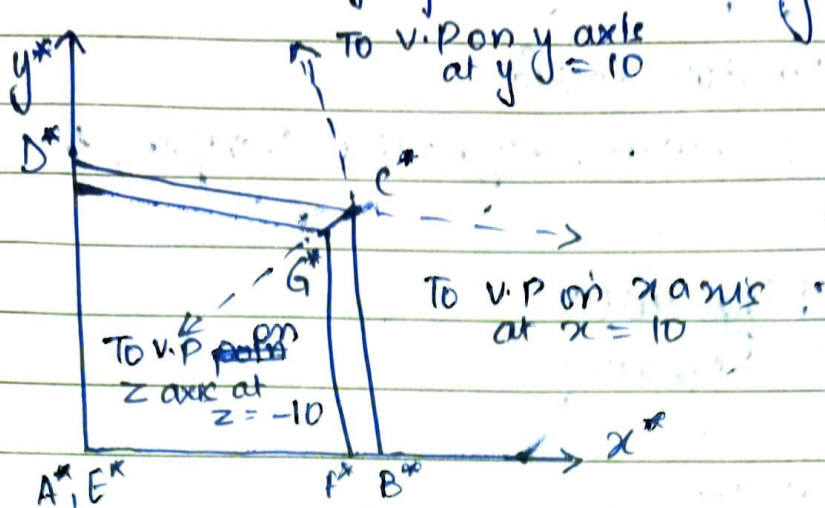 y*
To v.p on y axis
at y = 10
D*
C*
G*
To v.p on x axis
at x = 10
To v.p on
z axis at
z = -10
x*
A*, E*
F* B*